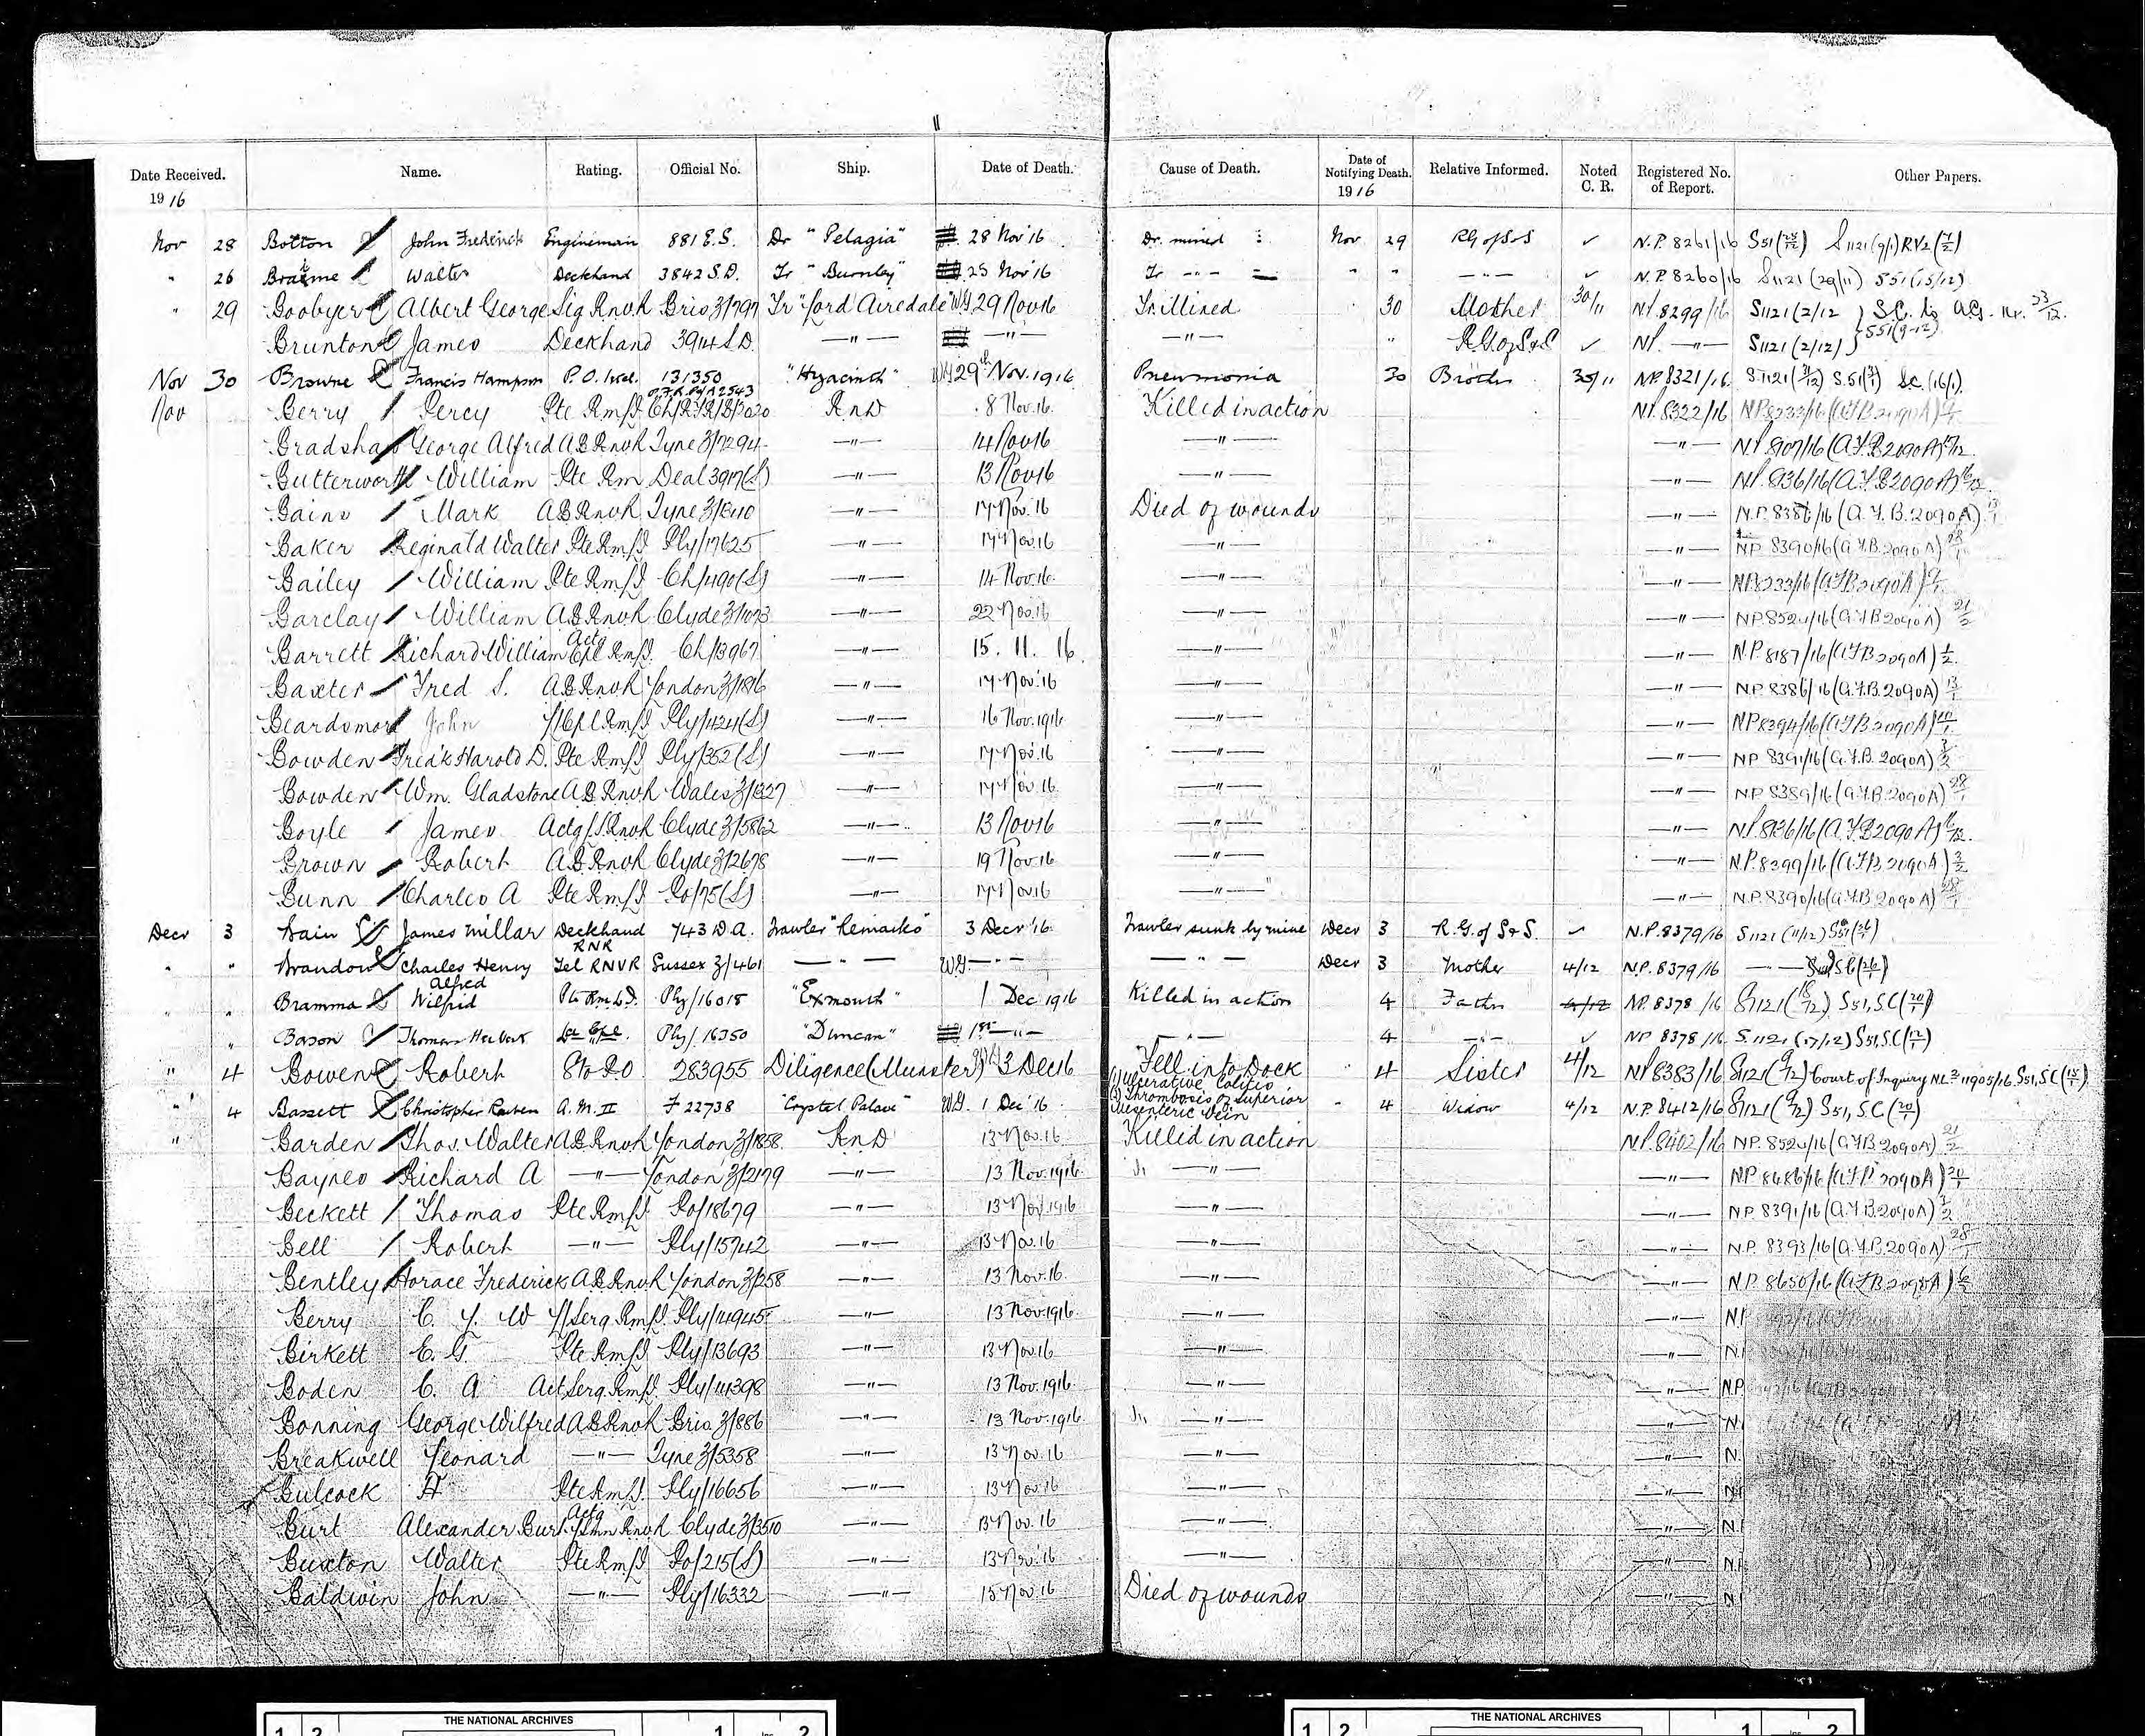 11
Date Received. Name. Rating. Official No. Ship. Date of Death. Cause of Death. Date of Notifying Death. Relative Informed. Noted C. R. Registered No. of Report. Other Papers.
1916 1916
Nov 28 Botton John Frederick Engineman 881 E.S. Dr "Pelagia" 28 Nov '16 Dr. mined Nov 29 RG of S&S ✓ N.P. 8261/16 S51
" 26 Walter Deckhand 3842 S.D. Tr "Burnley" 25 Nov '16 Tr -"- " " -"- ✓ N.P. 8260/16 S1121 (29/11) S51 (15/12)
" 29 Boobyer Albert George Sig RNVR Bris Z/797 Tr "Lord Airedale" 29 Nov 16 Tr. Mined 30 Mother 30/11 NP 8299/16 S1121 (2/12)
Brunton James Deckhand 3914 S.D. -"- -"- -"- " R.G. of S&S ✓ NP. -"- S1121 (2/12) S51 (9-12)
Nov 30 Browne Francis Hampson P.O. 131350 "Hyacinth" 29th Nov. 1916 Pneumonia 30 Brother 30/11 NP. 8321/16 S.C. (16/1)
Nov Berry Percy Pte RMLI RND 8 Nov. 16 Killed in action NP. 8322/16 NP 8233/16 (AFB 2090A)
Bradshaw George Alfred AB RNVR Tyne Z/7294 -"- 14 Nov 16 -"- -"- NP 8107/16 (AFB 2090A)
Butterworth William Pte RM Deal 3917(S) -"- 13 Nov 16 -"- -"- NP 8136/16 (AFB 2090A)
Bains Mark AB RNVR Tyne Z/8110 -"- 17 Nov. 16 Died of wounds -"- N.P. 8386/16 (A.F.B. 2090A)
Baker Reginald Walter Pte RMLI Ply/17625 -"- 17 Nov. 16 -"- -"- NP 8390/16 (AFB. 2090A)
Bailey William Pte RMLI Ch/1490(S) -"- 14 Nov. 16 -"- -"- NP 8233/16 (AFB 2090A)
Barclay William AB RNVR Clyde Z/1093 -"- 22 Nov. 16 -"- -"- NP. 8524/16 (AFB 2090A) 21/2
Barrett Richard William Actg Cpl RMLI. Ch/13967 -"- 15. 11. 16 -"- -"- N.P. 8187/16 (AFB 2090A)
Baxter Fred S. AB RNVR London Z/1816 -"- 17 Nov. 16 -"- -"- NP. 8386/16 (A.F.B. 2090A) 13/1
Beardsmore John L/Cpl RMLI Ply/1424(S) -"- 16 Nov. 1916 -"- -"- NP 8394/16 (AFB 2090A)
Bowden Fredk Harold D. Pte RMLI Ply/352(S) -"- 17 Nov. 16 -"- -"- NP 8391/16 (A.F.B. 2090A) 3/2
Bowden Wm. Gladstone AB RNVR Wales Z/1327 -"- 17 Nov. 16 -"- -"- NP 8389/16 (AFB. 2090A) 28/1
Boyle James Actg L.S. RNVR Clyde Z/5862 -"- 13 Nov 16 -"- -"- NP. 8136/16 (AFB 2090A)
Brown Robert AB RNVR Clyde Z/2678 -"- 19 Nov. 16 -"- -"- N.P. 8399/16 (AFB 2090A) 3/2
Bunn Charles A Pte RMLI Po/75(S) -"- 17 Nov 16 -"- -"- N.P. 8390/16 (AFB. 2090A)
Decr 3 Bain James Millar Deckhand RNR 743 D.A. Trawler "Remarko" 3 Decr '16 Trawler sunk by mine Decr 3 R.G. of S&S. ✓ N.P. 8379/16 S1121 (11/12) S51
" " Brandon Charles Henry Tel RNVR Sussex Z/461 -"- -"- -"- Decr 3 Mother 4/12 N.P. 8379/16 -"-
" " Bramma Wilfrid Alfred Pte RMLI. Ply/16018 "Exmouth" 1 Dec 1916 Killed in action 4 Father 4/12 NP. 8378/16 S1121 S51, SC
" Bason Thomas Herbert Ply/16350 "Duncan" 1st -"- -"- 4 -"- ✓ NP 8378/16 S.1121 (17/12) S51, SC
" 4 Bowen Robert Sto P.O 283955 Diligence (Munster) 3 Dec 16 Fell into Dock " 4 Sister 4/12 NP 8383/16 S1121 Court of Inquiry NL 11905/16. S51, SC
" 4 Bassett Christopher Reuben A.M. II F 22738 "Crystal Palace" 1 Dec '16 (1) Ulcerative Colitis (2) Thrombosis of Superior Mesenteric Vein " 4 Widow 4/12 N.P. 8412/16 S1121 S51, SC
" Barden Thos. Walter AB RNVR London Z/1858 RND 13 Nov. 16 Killed in action NP. 8402/16 NP. 8524/16 (AFB 2090A) 21/2
Baynes Richard A -"- London Z/2179 -"- 13 Nov. 1916 -"- -"- NP 8486/16 (AFB 2090A)
Beckett Thomas Pte RMLI Po/18679 -"- 13 Nov. 1916 -"- -"- NP. 8391/16 (A.F.B. 2090A) 3/2
Bell Robert -"- Ply/15742 -"- 13 Nov. 16 -"- -"- N.P. 8393/16 (A.F.B. 2090A)
Bentley Horace Frederick AB RNVR London Z/258 -"- 13 Nov. 16 -"- -"- NP. 8650/16 (AFB 2090A)
Berry C. Y. W L/Serg RMLI. Ply/14945 -"- 13 Nov. 1916 -"- -"- NP
Birkett C. G. Pte RMLI Ply/13693 -"- 13 Nov. 16 -"- -"- N.P
Boden C. A Act Serg RMLI. Ply/14398 -"- 13 Nov. 1916 -"- -"- N.P
Bonning George Wilfred AB RNVR Bris. Z/886 -"- 13 Nov. 1916 -"- -"- N
Breakwell Leonard -"- Tyne Z/5358 -"- 13 Nov. 16 -"- -"- N.
Bulcock H Pte RMLI. Ply/16656 -"- 13 Nov. 16 -"- -"- N
Burt Alexander Actg RNVR Clyde Z/3510 -"- 13 Nov. 16 -"- -"- N.
Buxton Walter Pte RMLI Po/215(S) -"- 13 Nov. 16 -"- -"- N.
Baldwin John -"- Ply/16332 -"- 15 Nov. 16 Died of wounds -"- N
THE NATIONAL ARCHIVES THE NATIONAL ARCHIVES
1 2 1 Ins 2 1 2 1 Ins 2